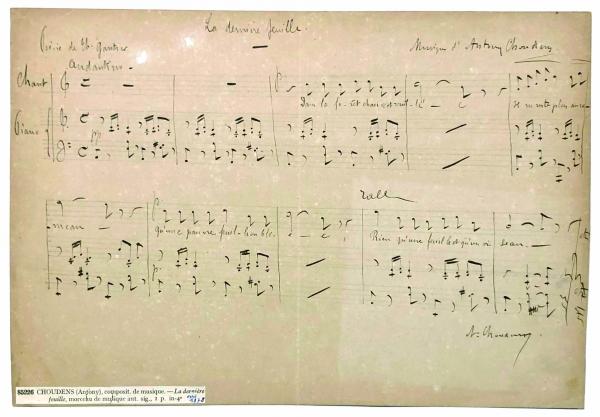 La dernière feuille.
Poésie de Th. Gautier
Musique d'Antony Choudens
Andantino
Chant
Piano
pp
Dans la forêt chauve et rouillé - e
Il ne reste plus au ra-
meau
Qu'une pauvre feuille oublié-
e
Rall
Rien qu'une feuille et qu'un oi - seau.
p.
A. Choudens
85226 CHOUDENS (Antony), composit. de musique. — La dernière
feuille, morceau de musique aut. sig., 1 p. in-4°